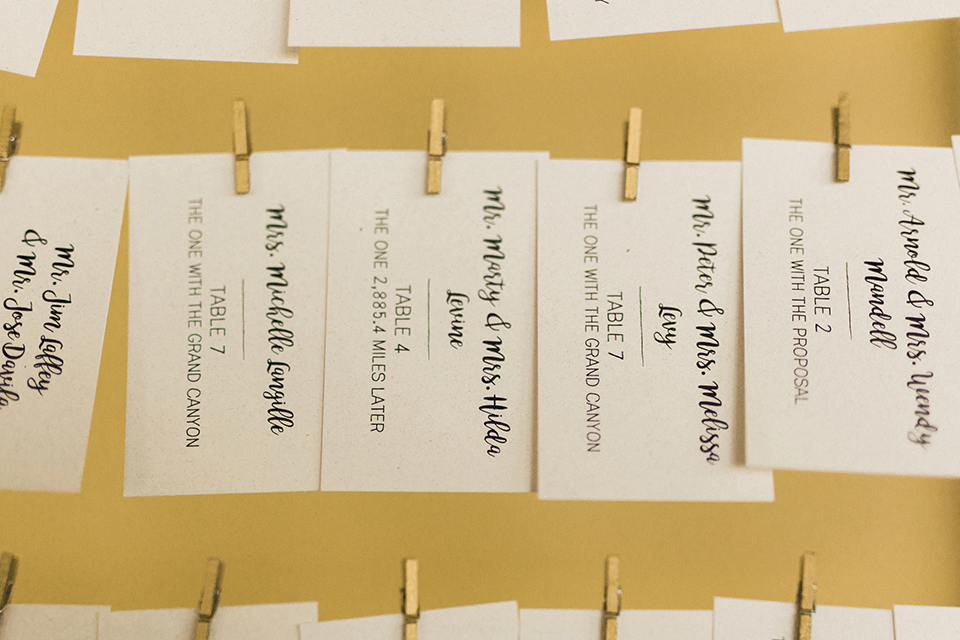 Mr. Jim Laffey
& Mr. Jose Davila
Mrs. Michelle Langille
TABLE 7
THE ONE WITH THE GRAND CANYON
Mr. Marty & Mrs. Hilda
Levine
TABLE 4
THE ONE 2,885.4 MILES LATER
Mr. Peter & Mrs. Melissa
Levy
TABLE 7
THE ONE WITH THE GRAND CANYON
Mr. Arnold & Mrs. Wendy
Mandell
TABLE 2
THE ONE WITH THE PROPOSAL